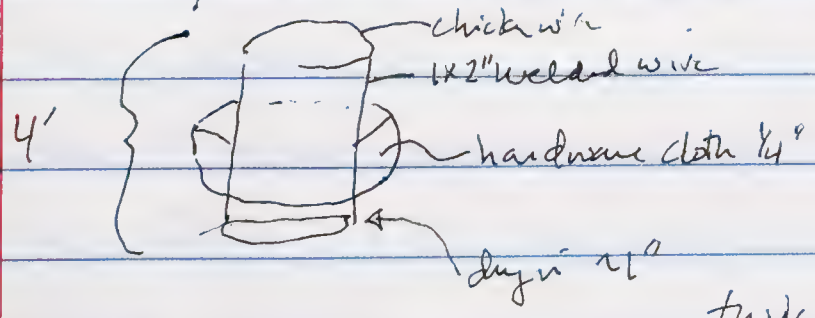 chicken wire
1x2" welded wire
4'
hardware cloth 1/4"
dug in ~1"